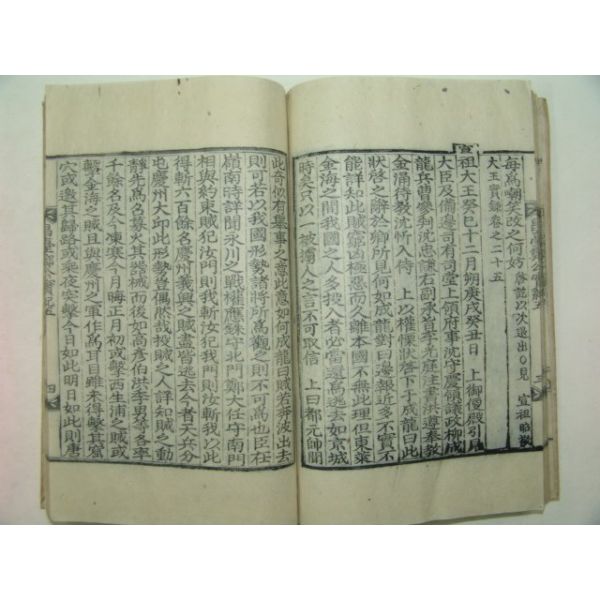 每爲嘲笑改之何妨 諸記以次退出○見 宣祖昭敬
大王實錄卷之二十五
宣祖大王癸巳十二月朔庚戌癸丑日 上御便殿引見
大臣及備邊司有司堂上領府事沈守慶領議政柳成
龍兵曹參判沈忠謙右副承旨李光庭注書洪遵奉敎
金涌待敎沈忻入侍 上以權慄狀啓下于成龍曰此
狀啓之辭於卿所見何如成龍對曰邊報近多不實不
能詳知此賊窮凶極惡而久離本國不無此理但東萊
金海之間我國之人多投入者必當還爲逃去如京城
時矣只以一被擄人之言不可取信 上曰都元帥聞
此奇似有擧事之意此意如何成龍曰賊若奔波出去
則可若以我國形勢諸將所爲觀之則不可爲也臣在
嶺南時詳聞永川之戰權應銖守北門鄭大任守南門
相與約束賊犯汝門則我斬汝犯我門則汝斬我以此
得斬六百餘名慶州義興之賊盡皆逃去今者天兵分
屯慶州大邱此形勢豈偶然哉投賊之人詳知賊之動
靜先爲名募火其器械而後如高彦伯洪李男等各率
千餘名及今凍寒今月晦正月初或擊西生浦之賊或
擊金海之賊且與慶州之軍作爲耳目雖未得擊其窟
穴或邀其歸路或乘夜突擊今日如此明日如此則唐
四